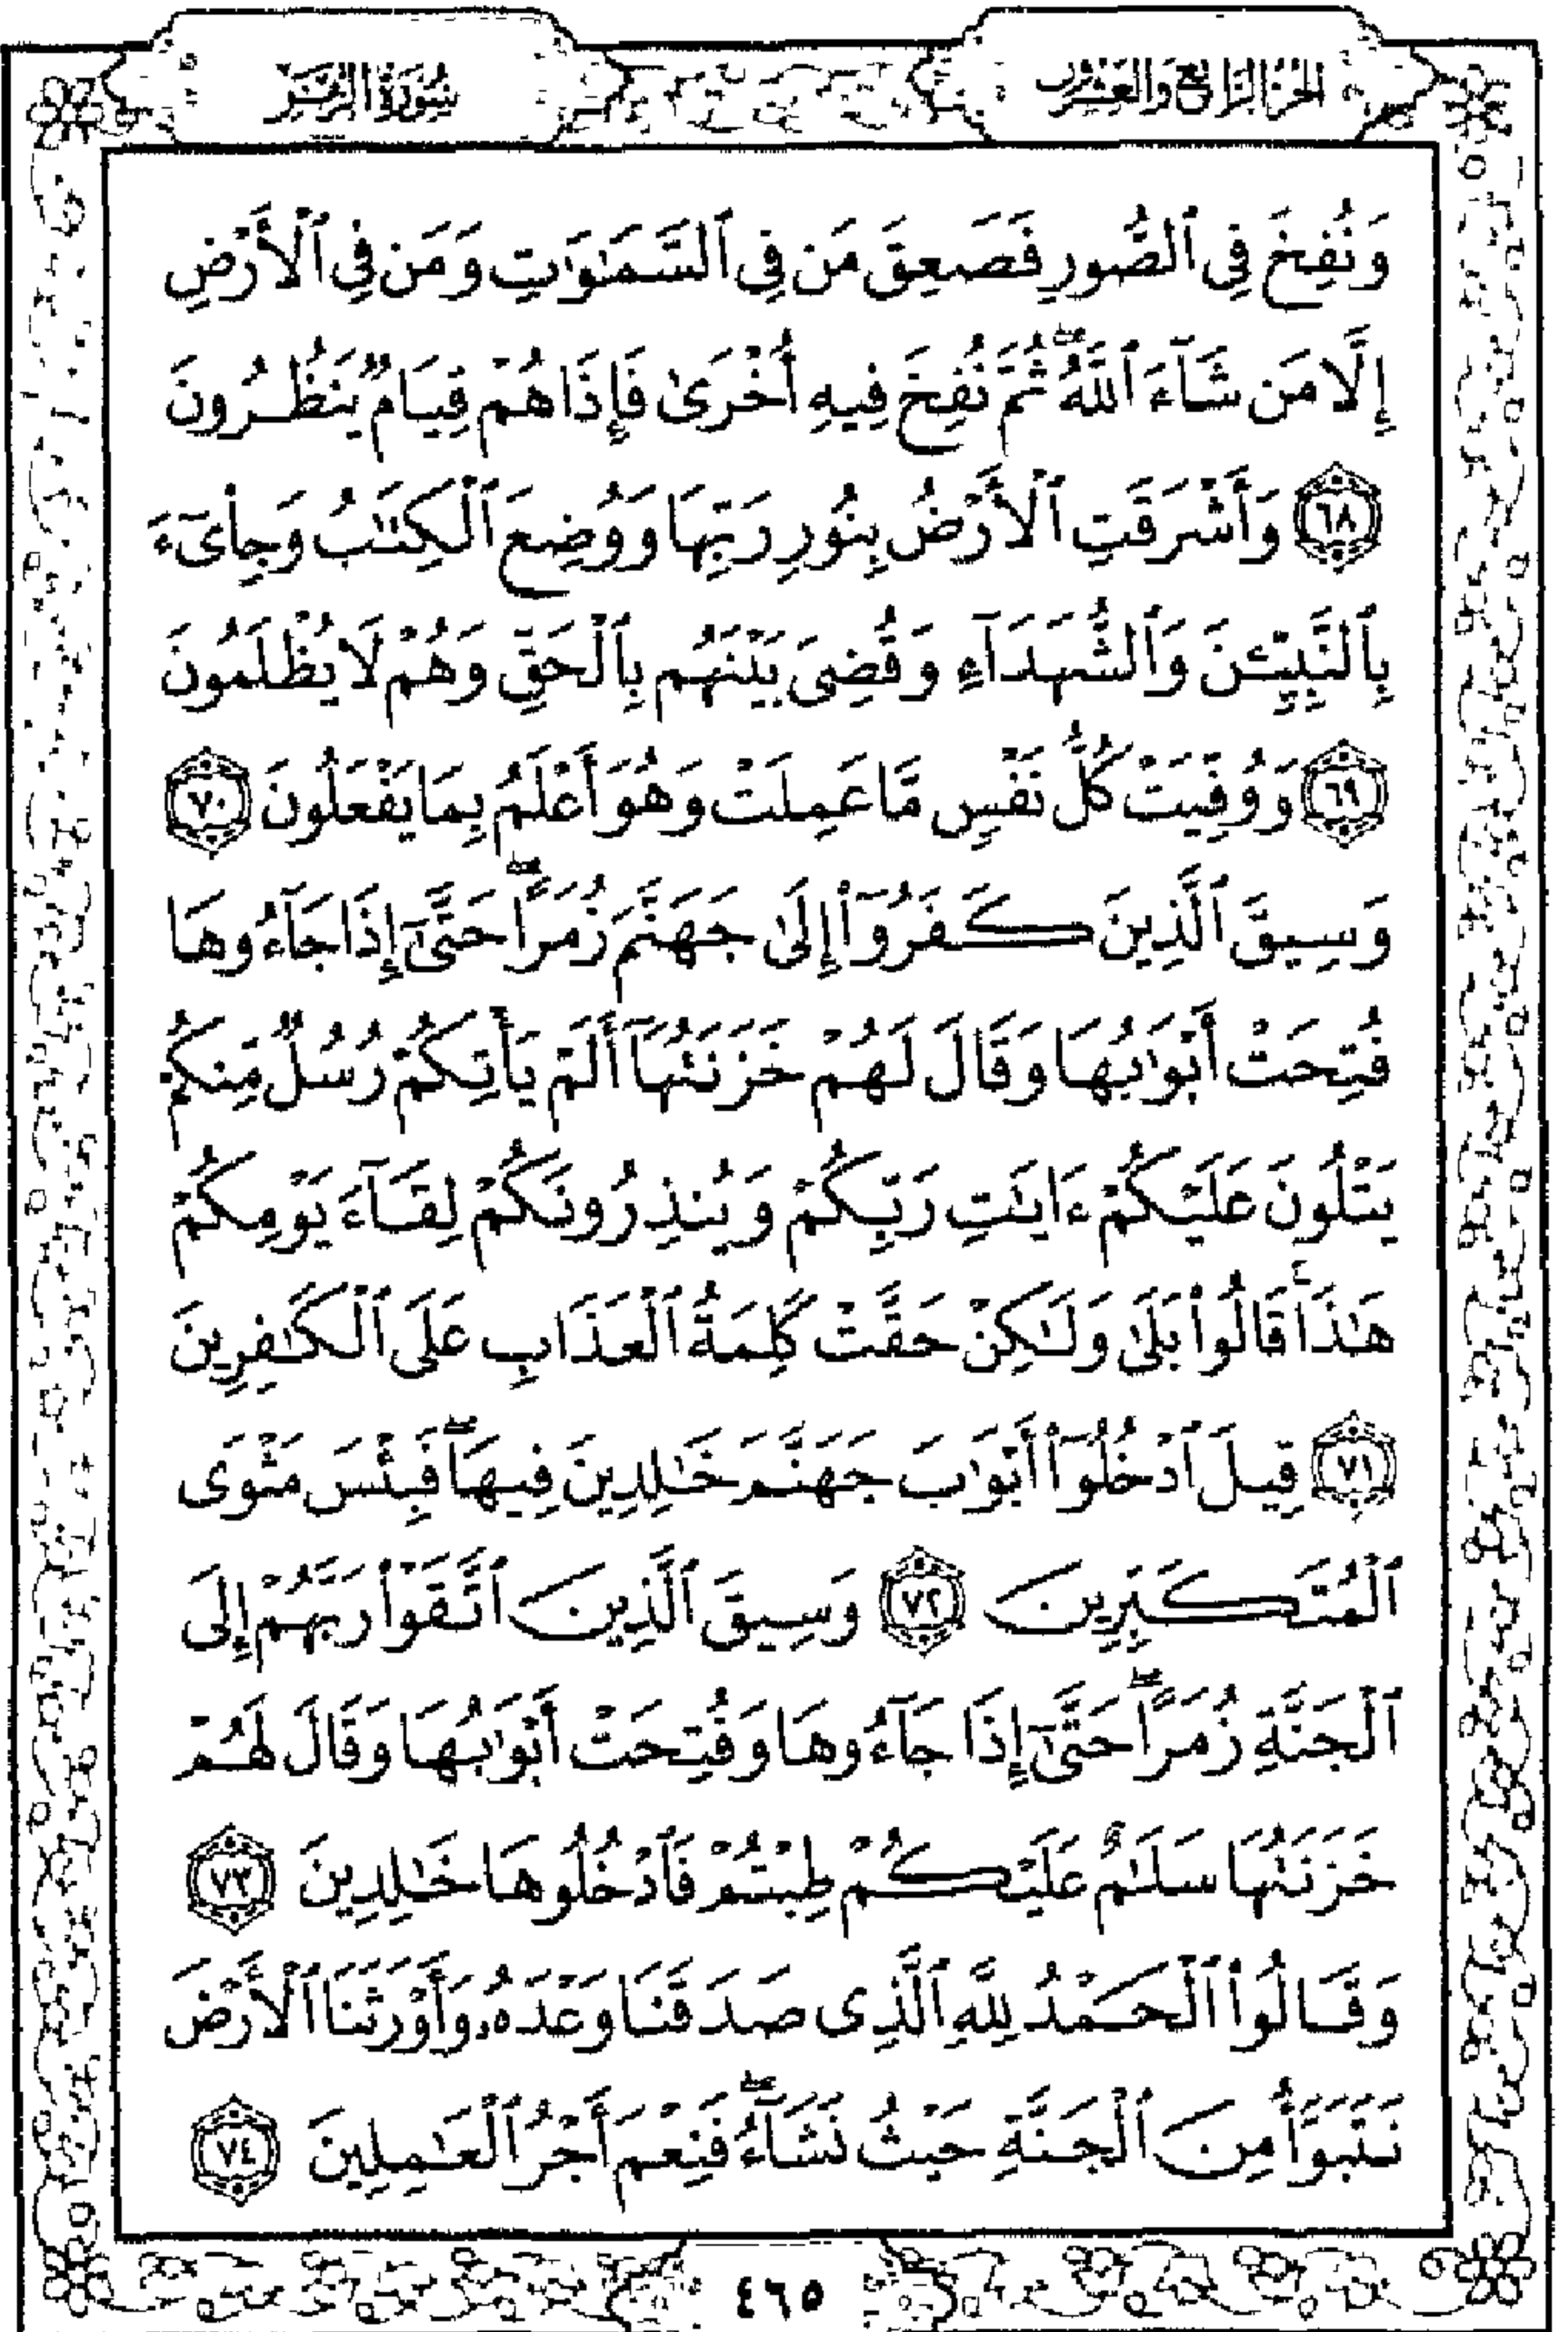 الجزء الرابع والعشرون
سورة الزمر
وَنُفِخَ فِى ٱلصُّورِ فَصَعِقَ مَن فِى ٱلسَّمَـٰوَٰتِ وَمَن فِى ٱلْأَرْضِ
إِلَّا مَن شَآءَ ٱللَّهُ ۖ ثُمَّ نُفِخَ فِيهِ أُخْرَىٰ فَإِذَا هُمْ قِيَامٌ يَنظُرُونَ
٦٨ وَأَشْرَقَتِ ٱلْأَرْضُ بِنُورِ رَبِّهَا وَوُضِعَ ٱلْكِتَـٰبُ وَجِا۟ىٓءَ
بِٱلنَّبِيِّـۧنَ وَٱلشُّهَدَآءِ وَقُضِىَ بَيْنَهُم بِٱلْحَقِّ وَهُمْ لَا يُظْلَمُونَ
٦٩ وَوُفِّيَتْ كُلُّ نَفْسٍ مَّا عَمِلَتْ وَهُوَ أَعْلَمُ بِمَا يَفْعَلُونَ ٧٠
وَسِيقَ ٱلَّذِينَ كَفَرُوٓا۟ إِلَىٰ جَهَنَّمَ زُمَرًا ۖ حَتَّىٰٓ إِذَا جَآءُوهَا
فُتِحَتْ أَبْوَٰبُهَا وَقَالَ لَهُمْ خَزَنَتُهَآ أَلَمْ يَأْتِكُمْ رُسُلٌ مِّنكُمْ
يَتْلُونَ عَلَيْكُمْ ءَايَـٰتِ رَبِّكُمْ وَيُنذِرُونَكُمْ لِقَآءَ يَوْمِكُمْ
هَـٰذَا ۚ قَالُوا۟ بَلَىٰ وَلَـٰكِنْ حَقَّتْ كَلِمَةُ ٱلْعَذَابِ عَلَى ٱلْكَـٰفِرِينَ
٧١ قِيلَ ٱدْخُلُوٓا۟ أَبْوَٰبَ جَهَنَّمَ خَـٰلِدِينَ فِيهَا ۖ فَبِئْسَ مَثْوَى
ٱلْمُتَكَبِّرِينَ ٧٢ وَسِيقَ ٱلَّذِينَ ٱتَّقَوْا۟ رَبَّهُمْ إِلَى
ٱلْجَنَّةِ زُمَرًا ۖ حَتَّىٰٓ إِذَا جَآءُوهَا وَفُتِحَتْ أَبْوَٰبُهَا وَقَالَ لَهُمْ
خَزَنَتُهَا سَلَـٰمٌ عَلَيْكُمْ طِبْتُمْ فَٱدْخُلُوهَا خَـٰلِدِينَ ٧٣
وَقَالُوا۟ ٱلْحَمْدُ لِلَّهِ ٱلَّذِى صَدَقَنَا وَعْدَهُۥ وَأَوْرَثَنَا ٱلْأَرْضَ
نَتَبَوَّأُ مِنَ ٱلْجَنَّةِ حَيْثُ نَشَآءُ ۖ فَنِعْمَ أَجْرُ ٱلْعَـٰمِلِينَ ٧٤
٤٦٥